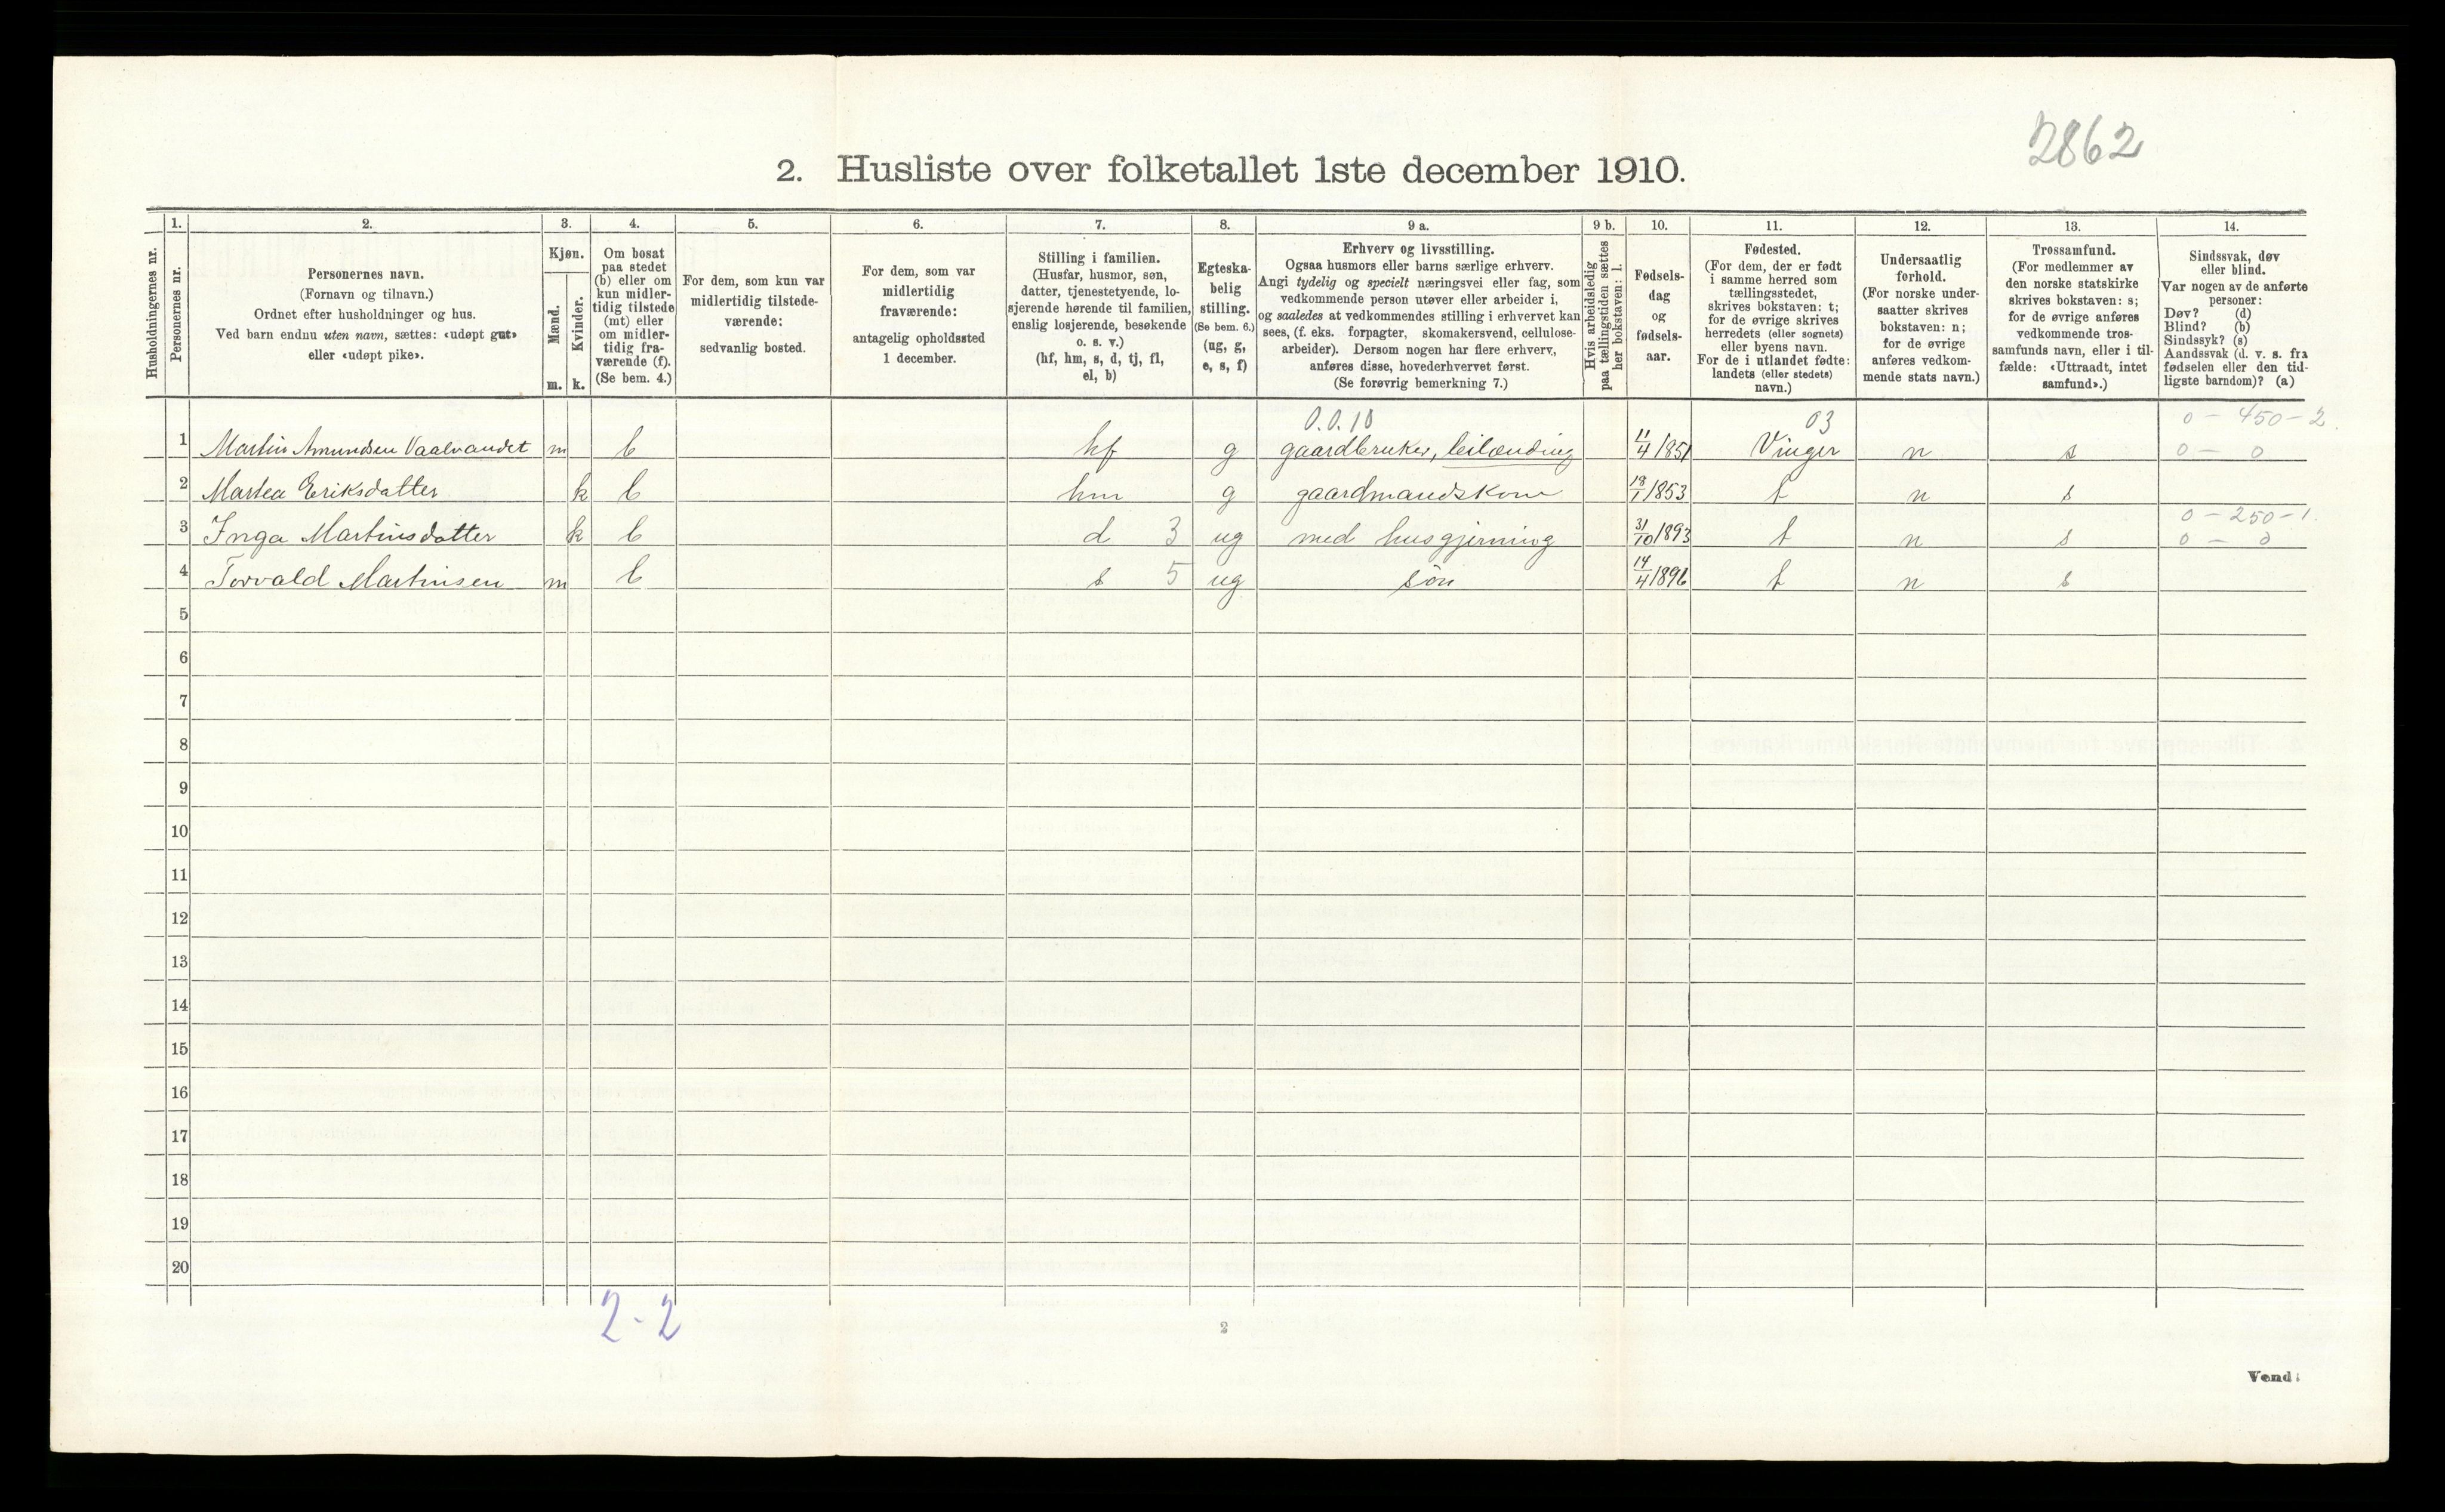 2862
2. Husliste over folketallet 1ste december 1910.
Husholdningernes nr.
1.
Personernes nr.
2.
Personernes navn.
(Fornavn og tilnavn.)
Ordnet efter husholdninger og hus.
Ved barn endnu uten navn, sættes: «udøpt gut»
eller «udøpt pike».
3.
Kjøn.
Mænd.
Kvinder.
m. k.
4.
Om bosat
paa stedet
(b) eller om
kun midler-
tidig tilstede
(mt) eller
om midler-
tidig fra-
værende (f).
(Se bem. 4.)
5.
For dem, som kun var
midlertidig tilstede-
værende:
sedvanlig bosted.
6.
For dem, som var
midlertidig
fraværende:
antagelig opholdssted
1 december.
7.
Stilling i familien.
(Husfar, husmor, søn,
datter, tjenestetyende, lo-
sjerende hørende til familien,
enslig losjerende, besøkende
o. s. v.)
(hf, hm, s, d, tj, fl,
el, b)
8.
Egteska-
belig
stilling.
(Se bem. 6.)
(ug, g,
e, s, f)
9 a.
Erhverv og livsstilling.
Ogsaa husmors eller barns særlige erhverv.
Angi tydelig og specielt næringsvei eller fag, som
vedkommende person utøver eller arbeider i,
og saaledes at vedkommendes stilling i erhvervet kan
sees, (f. eks. forpagter, skomakersvend, cellulose-
arbeider). Dersom nogen har flere erhverv,
anføres disse, hovederhvervet først.
(Se forøvrig bemerkning 7.)
9 b.
Hvis arbeidsledig
paa tællingstiden sættes
her bokstaven: l.
10.
Fødsels-
dag
og
fødsels-
aar.
11.
Fødested.
(For dem, der er født
i samme herred som
tællingsstedet,
skrives bokstaven: t;
for de øvrige skrives
herredets (eller sognets)
eller byens navn.
For de i utlandet fødte:
landets (eller stedets)
navn.)
12.
Undersaatlig
forhold.
(For norske under-
saatter skrives
bokstaven: n;
for de øvrige
anføres vedkom-
mende stats navn.)
13.
Trossamfund.
(For medlemmer av
den norske statskirke
skrives bokstaven: s;
for de øvrige anføres
vedkommende tros-
samfunds navn, eller i til-
fælde: «Uttraadt, intet
samfund».)
14.
Sindssvak, døv
eller blind.
Var nogen av de anførte
personer:
Døv? (d)
Blind? (b)
Sindssyk? (s)
Aandssvak (d. v. s. fra
fødselen eller den tid-
ligste barndom)? (a)
0.0.10 03 0 - 450 - 2.
1 Martin Amundsen Vaalvandet m b hf g gaardbruker, leilænding 11/4/1851 Vinger n s 0 - 0
2 Martea Eriksdatter k b hm g gaardmandskone 18/1/1853 t n s
0 - 250 - 1.
3 Inga Martinsdatter k b d 3 ug med husgjerning 31/10/1893 t n s 0 - 0
4 Torvald Martinsen m b s 5 ug søn 14/4/1896 t n s
5
6
7
8
9
10
11
12
13
14
15
16
17
18
19
20
2-2
2
Vend!